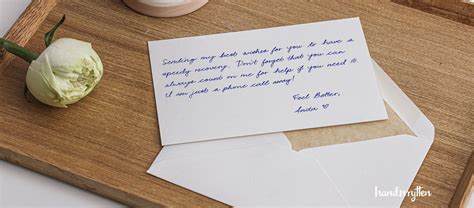 Sending my best wishes for you to have a
speedy recovery. Don't forget that you can
always count on me for help if you need it.
I am just a phone call away!
Feel Better,
Anita ♡
handwrytten